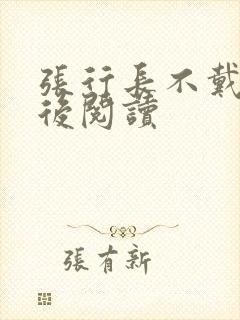 張行長不戴
後閱讀
張有新